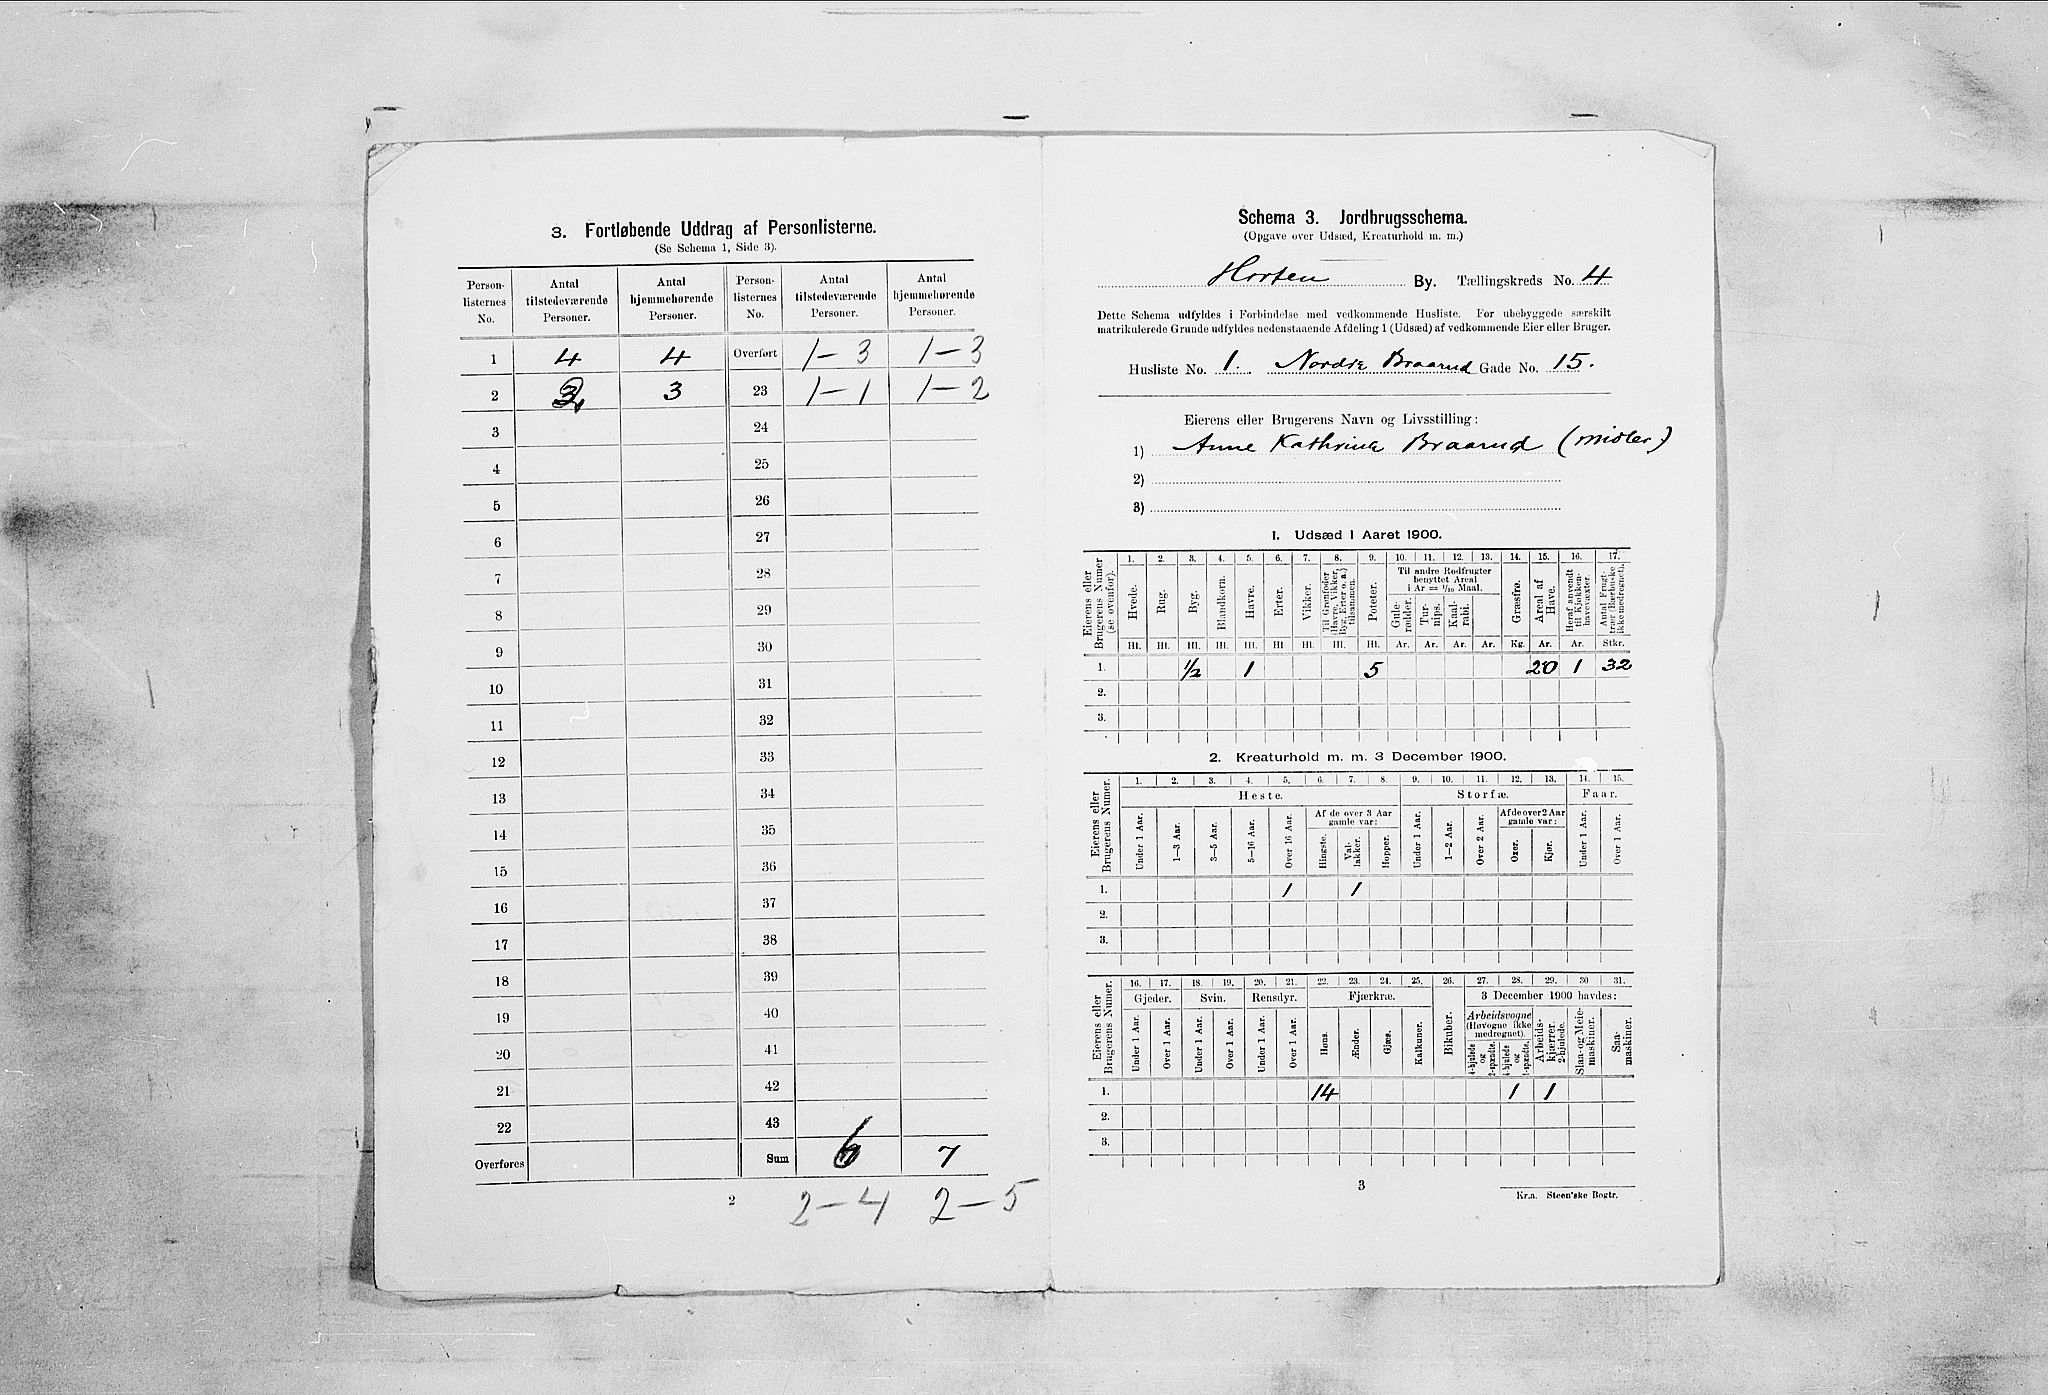 3. Fortløbende Uddrag af Personlisterne.
(Se Schema 1, Side 3).
Person-listernes No. | Antal tilstedeværende Personer. | Antal hjemmehørende Personer. | Person-listernes No. | Antal tilstedeværende Personer. | Antal hjemmehørende Personer.
1 | 4 | 4 | Overført | 1-3 | 1-3
2 | 3 | 3 | 23 | 1-1 | 1-2
3 | 24
4 | 25
5 | 26
6 | 27
7 | 28
8 | 29
9 | 30
10 | 31
11 | 32
12 | 33
13 | 34
14 | 35
15 | 36
16 | 37
17 | 38
18 | 39
19 | 40
20 | 41
21 | 42
22 | 43
Overføres | Sum | 6 | 7
2
2-4 2-5
Schema 3. Jordbrugsschema.
(Opgave over Udsæd, Kreaturhold m. m.)
Horten By. Tællingskreds No. 4
Dette Schema udfyldes i Forbindelse med vedkommende Husliste. For ubebyggede særskilt
matrikulerede Grunde udfyldes nedenstaaende Afdeling 1 (Udsæd) af vedkommende Eier eller Bruger.
Husliste No. 1. Nordre Braarud Gade No. 15.
Eierens eller Brugerens Navn og Livsstilling:
1) Anne Kathrine Braarud (midler)
2)
3)
1. Udsæd i Aaret 1900.
Eierens eller Brugerens Numer (se ovenfor).
1. 2. 3. 4. 5. 6. 7. 8. 9. 10. 11. 12. 13. 14. 15. 16. 17.
Hvede. Rug. Byg. Blandkorn. Havre. Erter. Vikker. Til Grønfoder (Havre, Vikker, Byg, Erter o. a.) tilsammen. Poteter.
Til andre Rodfrugter benyttet Areal i Ar = 1/10 Maal.
Gule-rødder. Tur-nips. Kaal-rabi. Græsfrø. Areal af Have. Heraf anvendt til Kjøkken-havevæxter. Antal Frugt-trær (Bærbuske ikke medregnet).
Hl. Hl. Hl. Hl. Hl. Hl Hl. Hl. Hl. Ar. Ar. Ar. Ar. Kg. Ar. Ar. Stkr.
1. 1/2 1 5 20 1 32
2.
3.
2. Kreaturhold m. m. 3 December 1900.
Eierens eller Brugerens Numer.
1. 2. 3. 4. 5. 6. 7. 8. 9. 10. 11. 12. 13. 14. 15.
Heste. Storfæ. Faar.
Af de over 3 Aar gamle var: Af de over 2 Aar gamle var:
Under 1 Aar. 1—3 Aar. 3—5 Aar. 5—16 Aar. Over 16 Aar. Hingste. Val-lakker. Hopper. Under 1 Aar. 1—2 Aar. Over 2 Aar. Oxer. Kjør. Under 1 Aar. Over 1 Aar.
1. 1 1
2.
3.
Eierens eller Brugerens Numer.
16. 17. 18. 19. 20. 21. 22. 23. 24. 25. 26. 27. 28. 29. 30 31.
Gjeder. Svin. Rensdyr. Fjærkræ. Bikuber. 3 December 1900 havdes:
Arbeidsvogne (Høvogne ikke medregnet).
Under 1 Aar. Over 1 Aar. Under 1 Aar. Over 1 Aar. Under 1 Aar. Over 1 Aar. Høns. Ænder. Gjæs. Kalkuner. 4-hjulede og 2-spændte. 4-hjulede og 1-spændte. Arbeids-kjærrer, 2-hjulede. Slaa- og Meie-maskiner. Saa-maskiner.
1. 14 1 1
2.
3.
3
Kr.a. Steen'ske Bogtr.